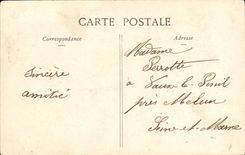 CARTE POSTALE
Correspondance
Adresse
Sincère
amitié
Madame
Perrotte
à Vaux-le-Penil
près Melun
Seine-et-Marne